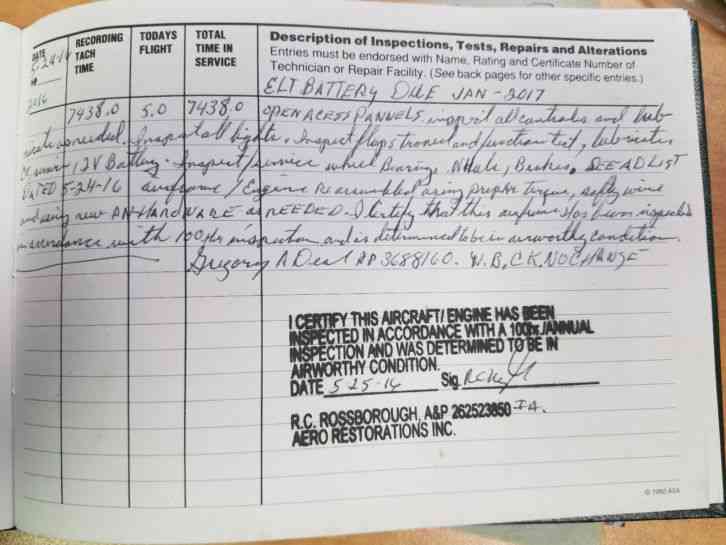 DATE
RECORDING TACH TIME
TODAYS FLIGHT
TOTAL TIME IN SERVICE
Description of Inspections, Tests, Repairs and Alterations
Entries must be endorsed with Name, Rating and Certificate Number of
Technician or Repair Facility. (See back pages for other specific entries.)
5-24-16
ELT BATTERY DUE JAN - 2017
2016
7438.0 5.0 7438.0 OPEN ACESS PANNELS. inspect all controls and lub
ricate as needed. Inspect all lights. Inspect flaps and function test, lubricate
12V Battery. Inspect/service wheel Bearings, Brakes. SEE AD LIST
DATED 5-24-16 airframe/Engine Reassembled using proper torque, safty wire
and using new AN HARDWARE as NEEDED. I Certify that this airframe has been inspected
in accordance with 100 Hr inspection and is determined to be in airworthy condition.
Gregory A Deal AP 3688160. W.B. CK. NO CHANGE
I CERTIFY THIS AIRCRAFT/ ENGINE HAS BEEN
INSPECTED IN ACCORDANCE WITH A 100hr./ANNUAL
INSPECTION AND WAS DETERMINED TO BE IN
AIRWORTHY CONDITION.
DATE 5-25-16 Sig.
R.C. ROSSBOROUGH, A&P 262523850 IA.
AERO RESTORATIONS INC.
© 1992 ASA